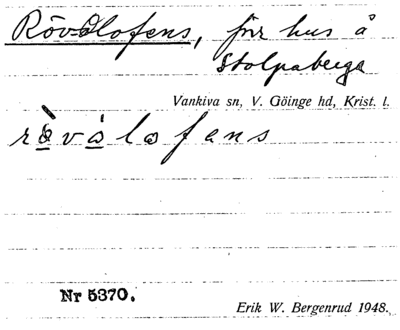 Rövolofens, förr hus å
Stolpaberga
Vankiva sn, V. Göinge hd, Krist. l.
Nr 5370.
Erik W. Bergenrud 1948.